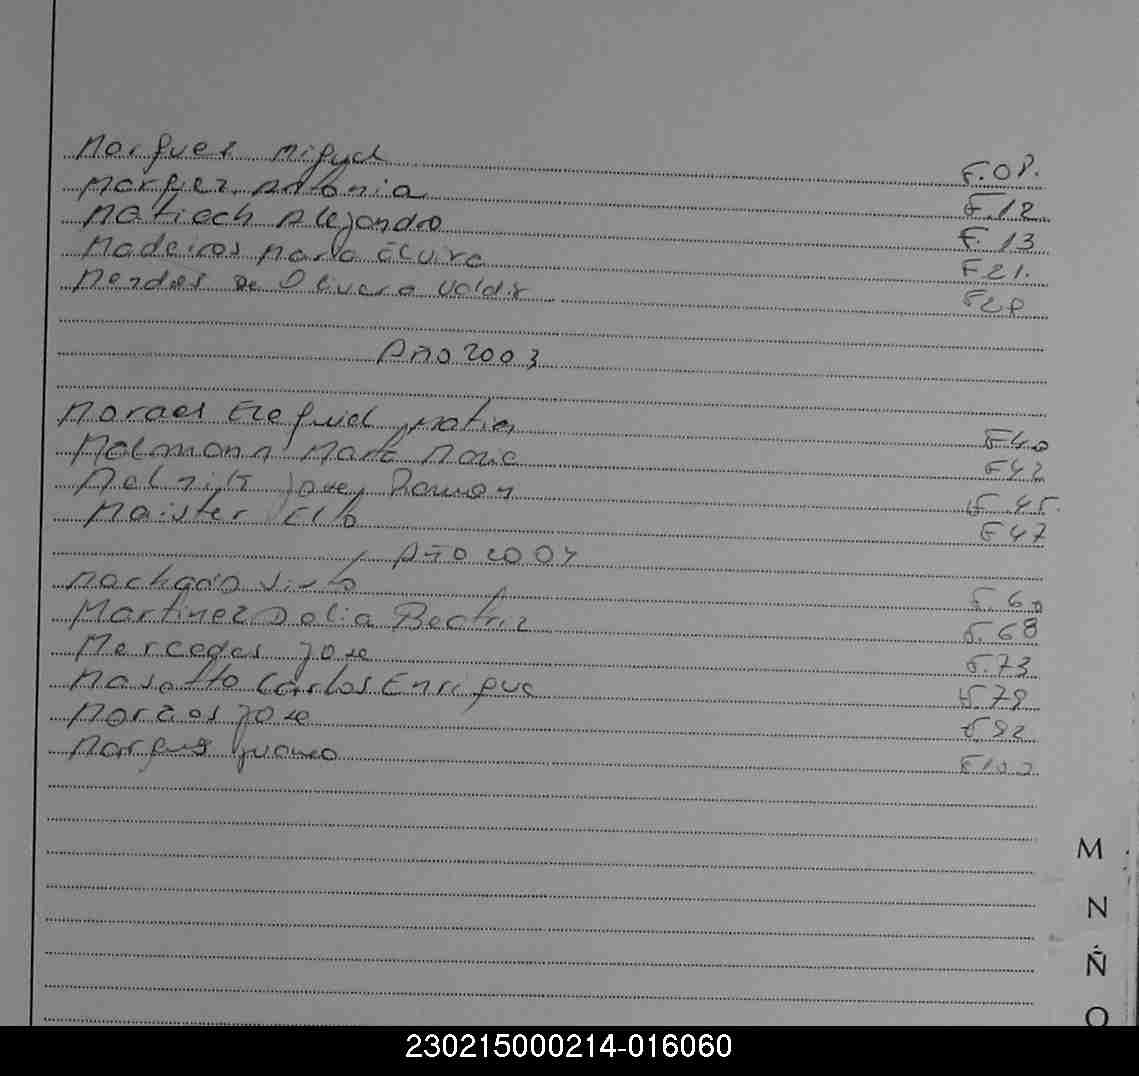 Marques Miguel F.08.
Marquez Antonia F.12
Matioch Alejandro F.13
Madeiros Maria Elvira F21.
Mendes De Olivera Valdir F28
Año 2003
Moraes Ezequiel Matias F40
Malmann Marta Maria F42
Jose Ramon F.45.
Maister Elto F47
Año 2004
Machado F.60
Martinez Delia Beatriz F.68
Mercedes Jose F.73
Masotto Carlos Enrique F.79
Moraes Jose F92
Marques Juana F100
M
N
Ñ
O
230215000214-016060